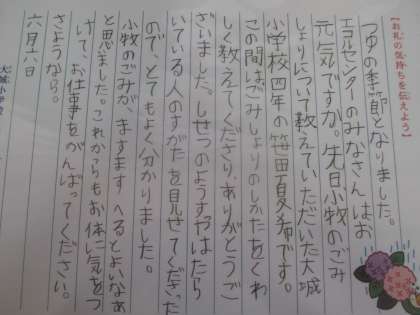 【お礼の気持ちを伝えよう】
つゆの季節となりました。
エコルセンターのみなさんはお
元気ですか。先日小牧のごみ
しょりについて教えていただいた大城
小学校四年の笹田夏希です。
この間はごみしょりのしかたをくわ
しく教えてくださり、ありがとうご
ざいました。しせつのようすやはたら
いている人のすがたを見せてくださった
ので、とてもよく分かりました。
小牧のごみが、ますますへるとよいなあ
と思いました。これからもお体に気をつ
けて、お仕事をがんばってください。
さようなら。
六月十八日
大城小学校